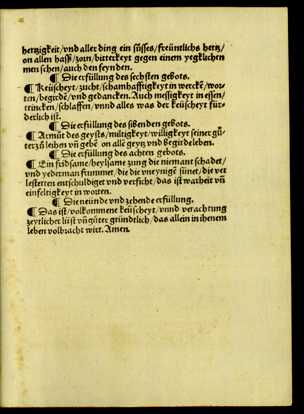 hertzigkeit/vnd aller ding ein süsses/freüntlichs hertz/
on allen hassz/zorn/bitterkeyt gegen einem yegklichen
menschen/auch den feynden.
¶ Die erfüllung des sechsten gebots.
¶ Keüscheyt/zucht/schamhafftigkeyt in wercke͂/wor-
ten/begirde͂/vnd gedancken. Auch messigkeyt in essen/
trincken/schlaffen/vnnd alles was der keüscheyt für-
derlich ist.
¶ Die erfüllung des sibenden gebots.
¶ Armůt des geysts/miltigkeyt/willigkeyt seiner gü-
ter zů leihen vn͂ gebe͂ on alle geytz vnd begirde leben.
¶ Die erfüllung des achten gebots.
¶ Ein fridsame heylsame zung die niemant schadet/
vnd yederman frummet/die die vneynige͂ sünet/die ver
lesterten entschuldiget vnd verficht/das ist warheit vn͂
einfeltigkeyt in worten.
¶ Die neünde vnd zehende erfüllung.
¶ Das ist/volkomene keüscheyt/vnnd verachtung
zeytlicher lüst vn͂ güter gründtlich/das allein in ihenem
leben volbracht wirt. Amen.